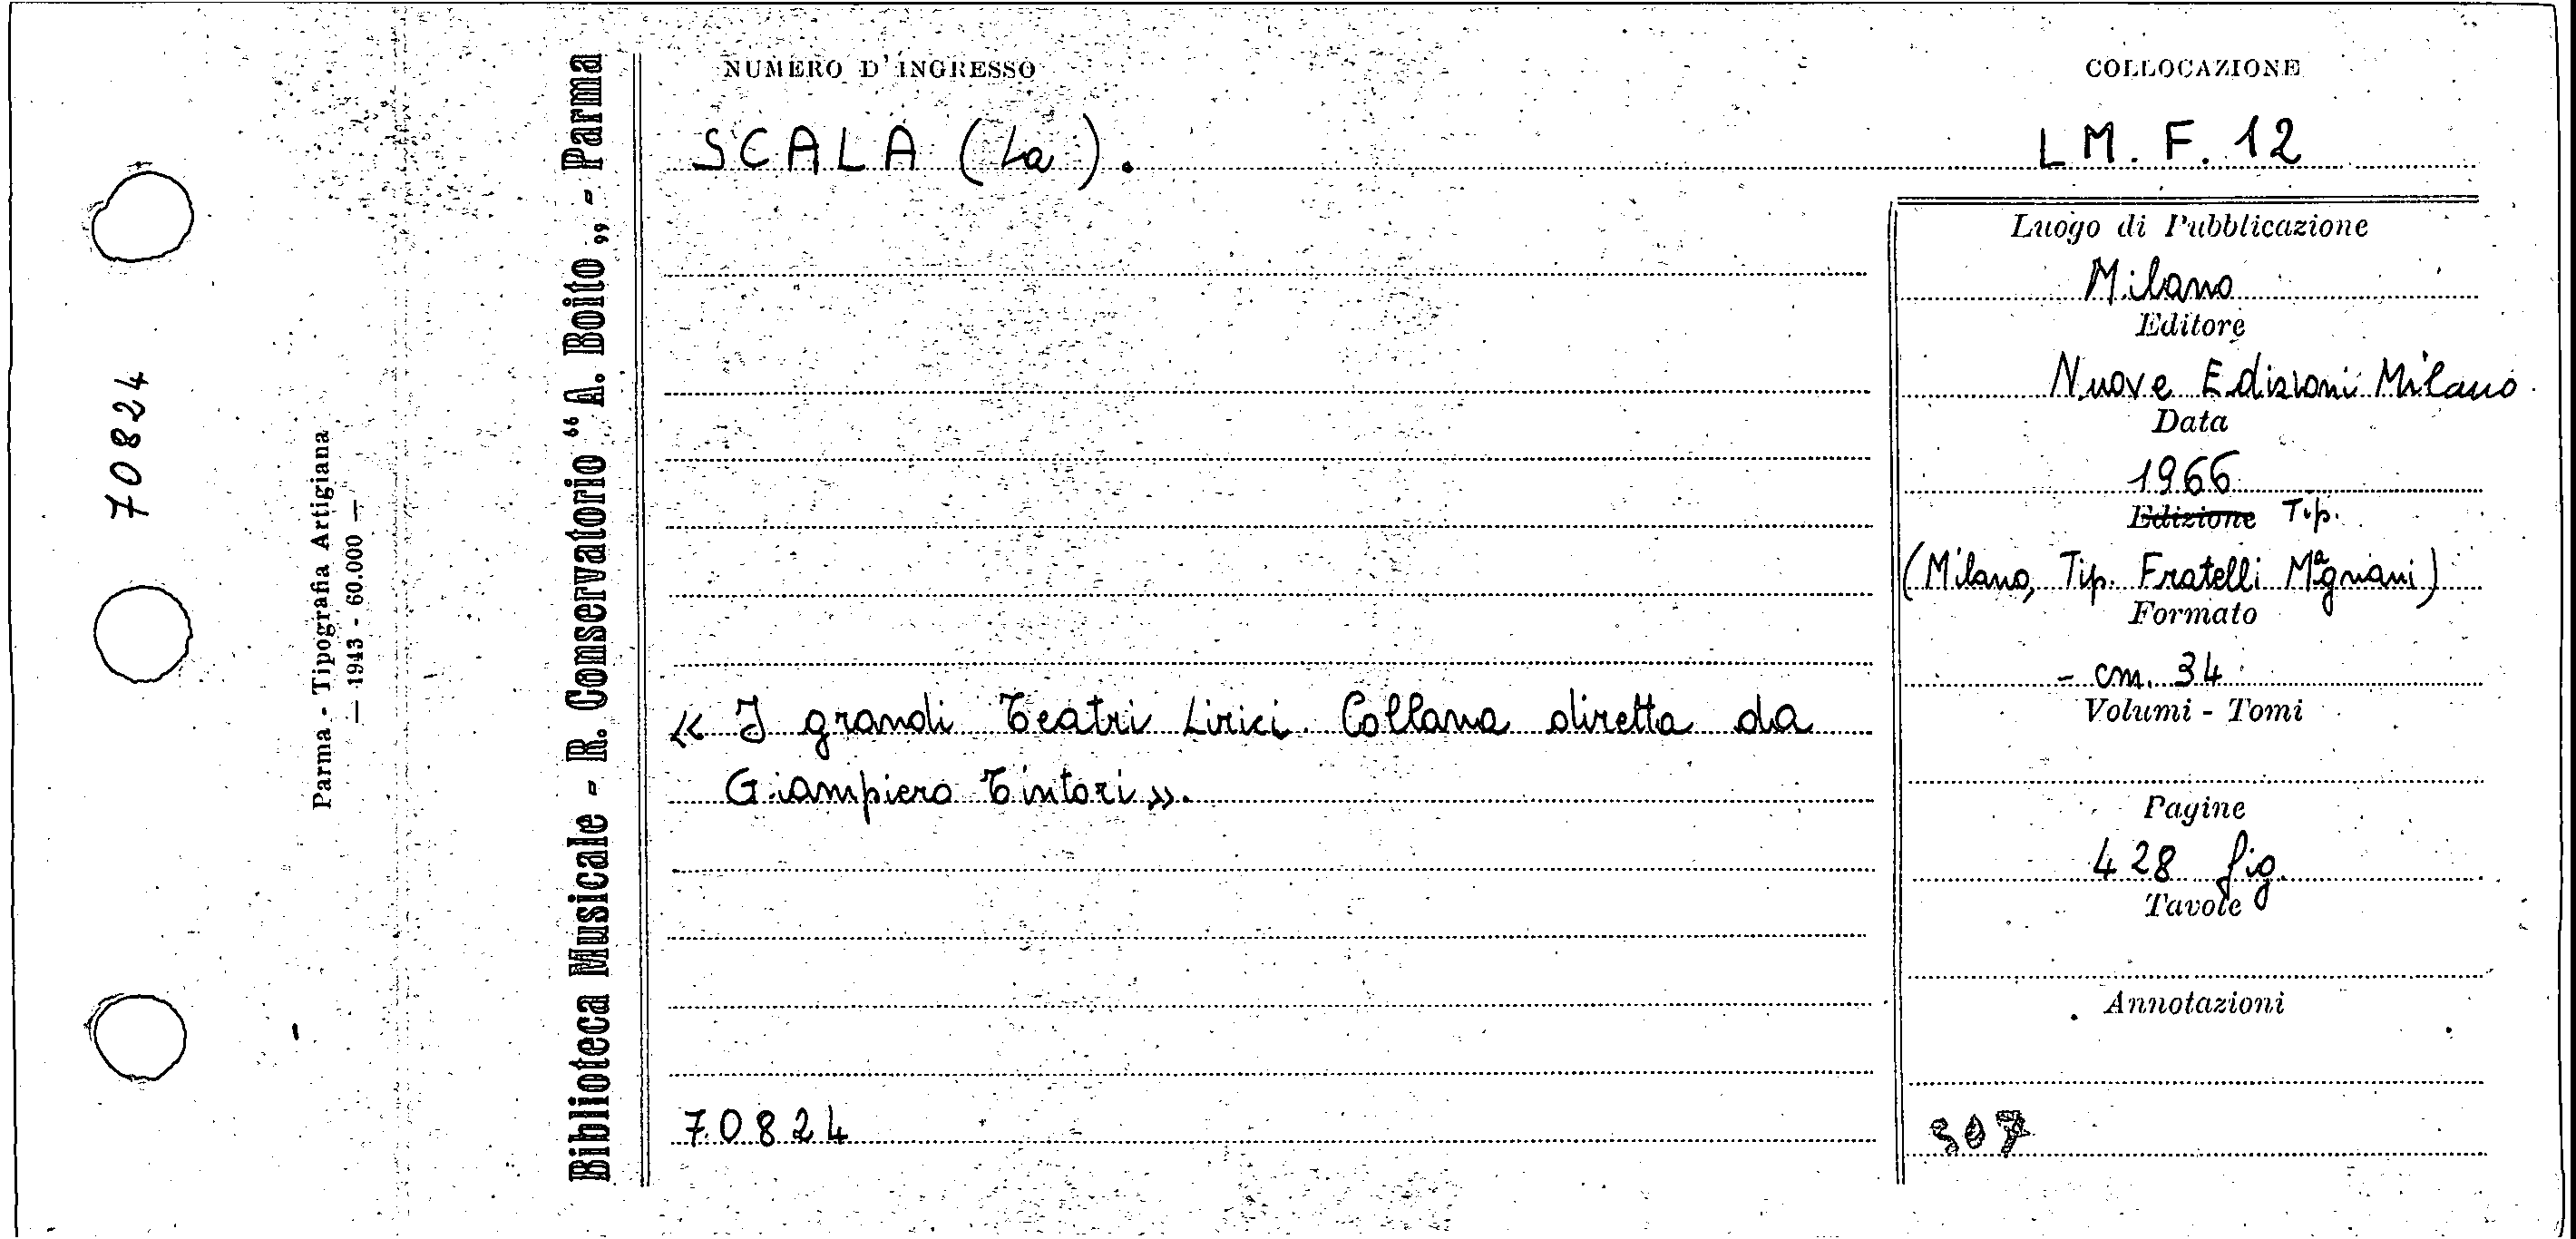 70824
Parma - Tipografia Artigiana
— 1943 - 60.000 —
Biblioteca Musicale - R. Conservatorio “A. Boito„ - Parma
NUMERO D'INGRESSO
COLLOCAZIONE
SCALA (La).
LM. F. 12
Luogo di Pubblicazione
Milano
Editore
Nuove Edizioni Milano
Data
1966
Edizione Tip.
(Milano, Tip. Fratelli Magnani)
Formato
- cm. 34
Volumi - Tomi
« I grandi Teatri Lirici. Collana diretta da
Giampiero Tintori».
Pagine
428 fig.
Tavole
Annotazioni
70824
307